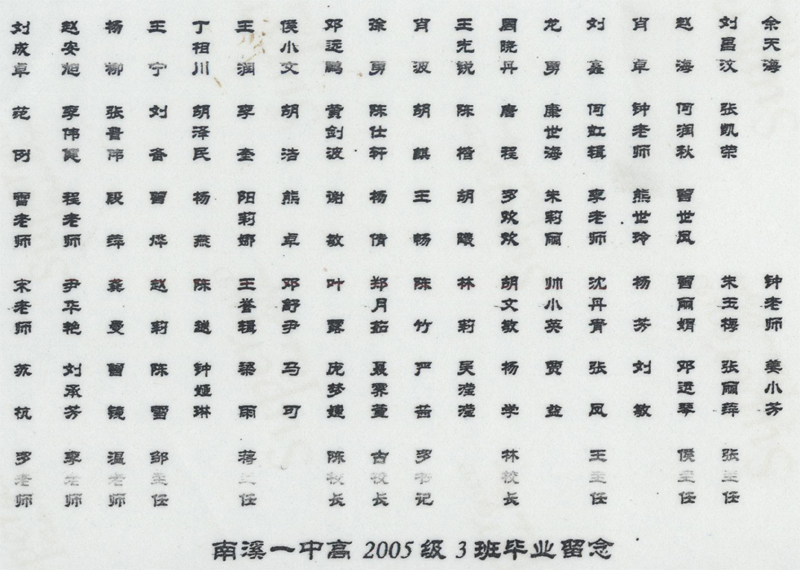 刘成卓 赵安旭 杨柳 王宁 丁相川 王润 侯小文 邓远鹏 徐勇 肖波 王光锐 周晓丹 龙勇 刘鑫 肖卓 赵海 刘昌汶 余天海
范例 李伟 张晋伟 刘奋 胡泽民 李奎 胡洁 黄剑波 陈仕轩 胡麒 陈楷 唐程 康世海 何虹辑 钟老师 何润秋 张凯荣
曾老师 程老师 段萍 曾烨 杨燕 阳莉娜 熊卓 谢敏 杨倩 王畅 胡 罗欢欢 朱莉丽 李老师 熊世玲 曾世凤
宋老师 尹华艳 龚曼 赵莉 陈越 王誉辑 邓舒尹 叶露 郑月茹 陈竹 林莉 胡文敏 帅小英 沈丹青 杨芳 曾丽娟 朱玉梅 钟老师
苏杭 刘承芳 曾镜 陈雪 钟娅琳 梁雨 马可 庞梦婕 聂霁萱 严茜 吴滢滢 杨学 贾益 张凤 刘敏 邓进琴 张丽萍 姜小芳
罗老师 李老师 温老师 邹主任 蒋主任 陈校长 古校长 罗书记 林校长 王主任 侯主任 张主任
南溪一中高2005级3班毕业留念